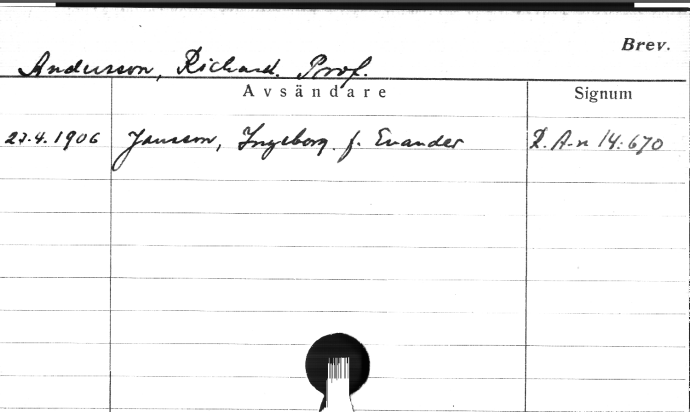 Brev.
Andersson, Richard. Prof.
Avsändare Signum
27.4.1906 Jansson, Ingeborg. f. Evander R. A-n 14:670